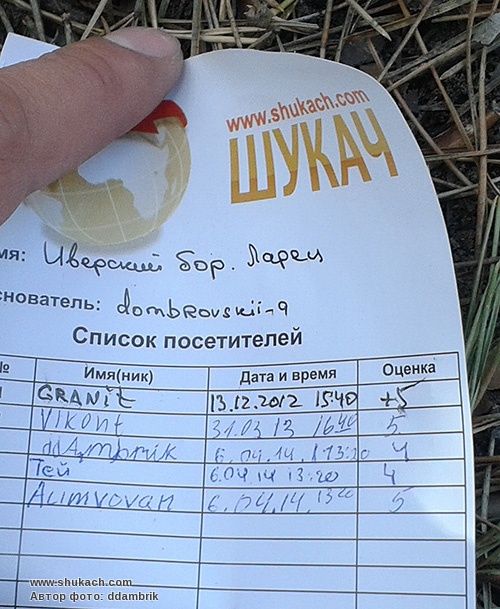 www.shukach.com
ШУКАЧ
мя: Иверский бор. Ларец
снователь: dombrovskii-9
Список посетителей
№ Имя(ник) Дата и время Оценка
GRANit 13.12.2012 15 40 +5
Vikont 31.03 13 16 40 5
ddAmbrik 6.04.14. 13:20 4
Тей 6.04 14 13:20 4
Alimvovan 6.04.14. 13 20 5
www.shukach.com
Автор фото: ddambrik